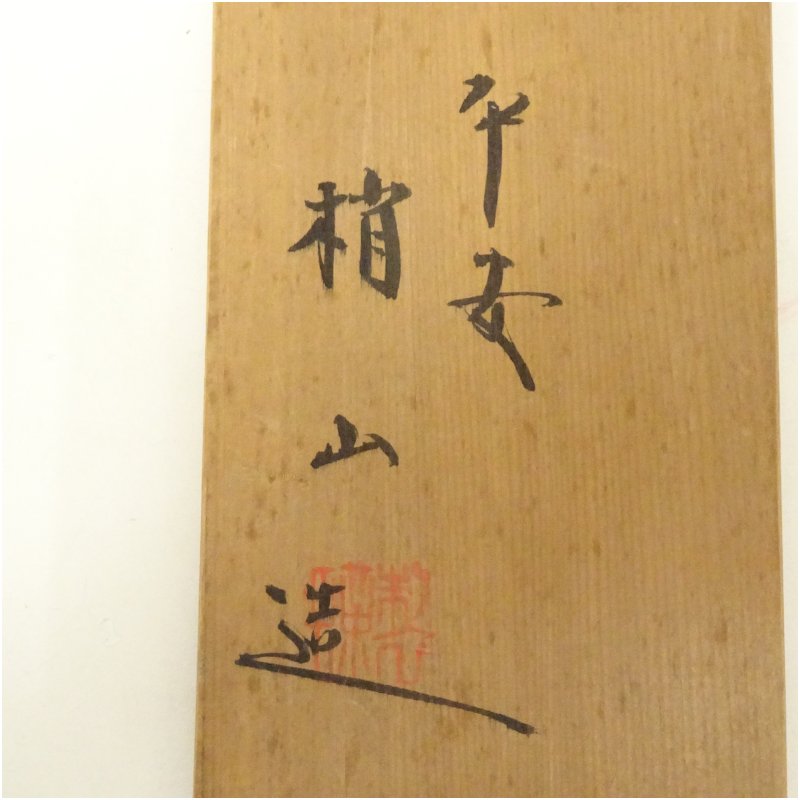 平安
梢山造